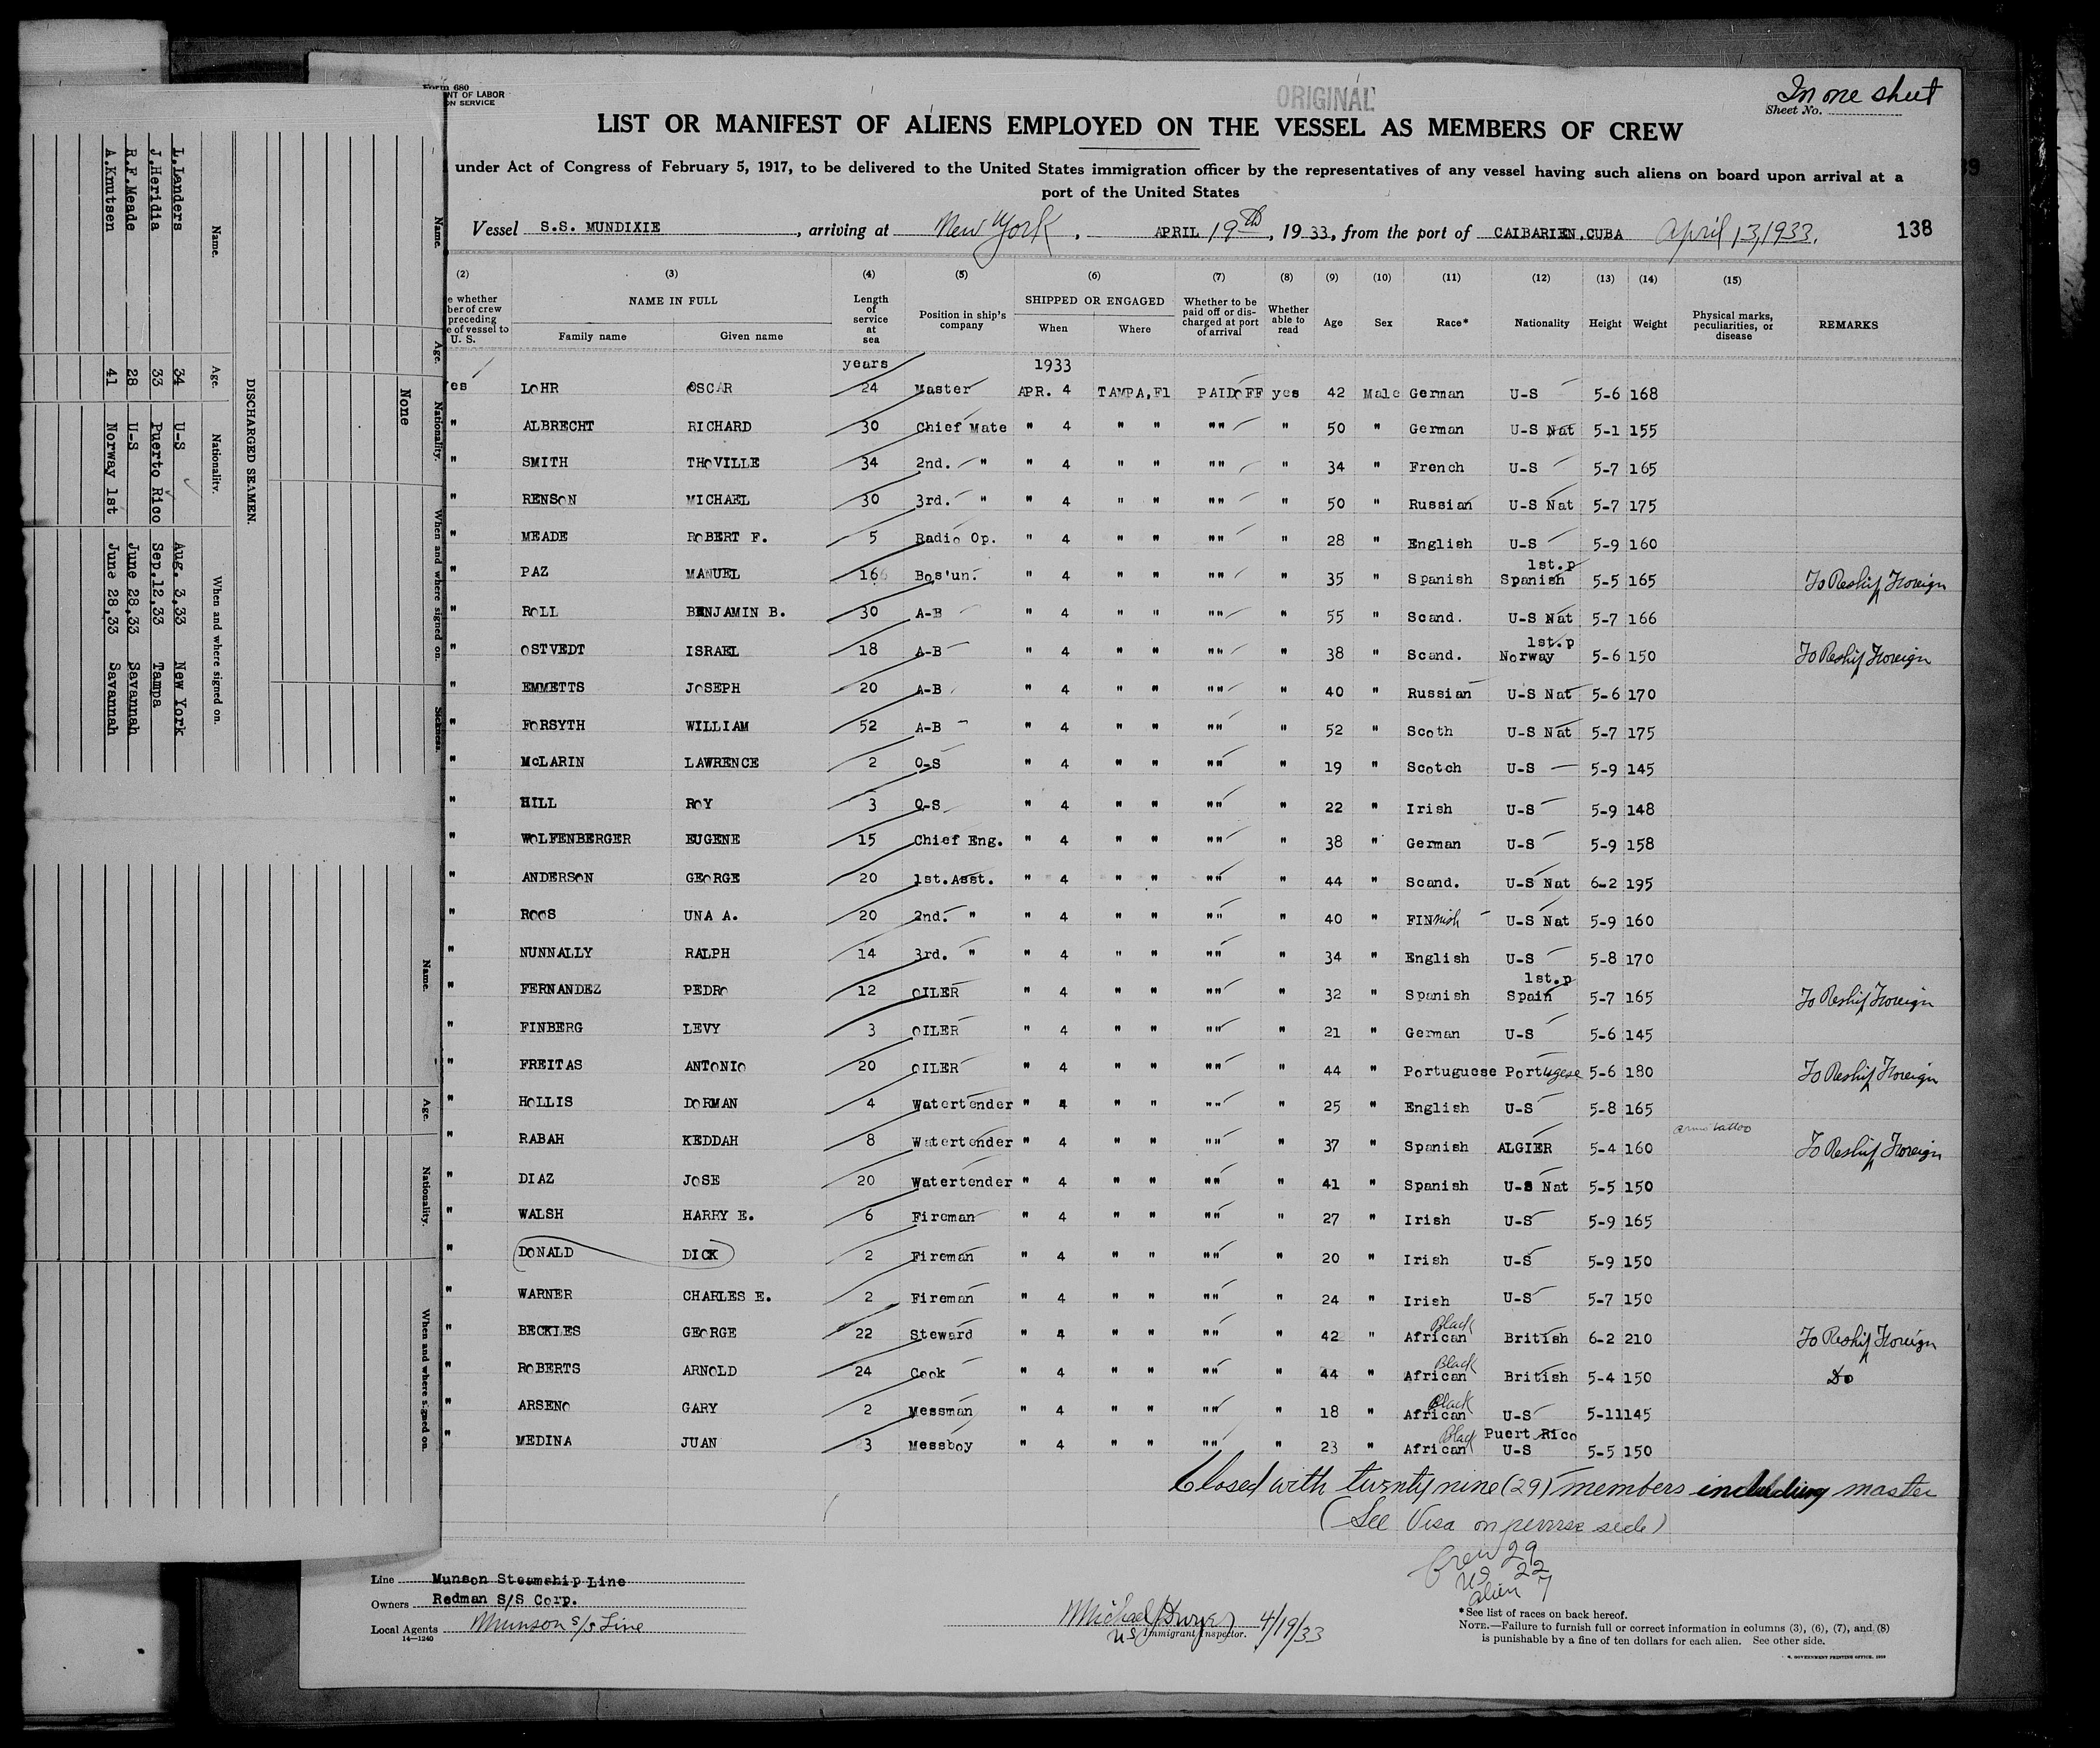 Form 680
NT OF LABOR
ON SERVICE
ORIGINAL
In one sheet
Sheet No.
LIST OR MANIFEST OF ALIENS EMPLOYED ON THE VESSEL AS MEMBERS OF CREW
under Act of Congress of February 5, 1917, to be delivered to the United States immigration officer by the representatives of any vessel having such aliens on board upon arrival at a
port of the United States
Vessel S.S. MUNDIXIE, arriving at New York, APRIL 19th, 1933, from the port of CAIBARIEN,CUBA April 13,1933. 138
(2) (3) (4) (5) (6) (7) (8) (9) (10) (11) (12) (13) (14) (15)
e whether
ber of crew
preceding
e of vessel to
U. S.
NAME IN FULL
Family name Given name
Length
of
service
at
sea
Position in ship's
company
SHIPPED OR ENGAGED
When Where
Whether to be
paid off or dis-
charged at port
of arrival
Whether
able to
read
Age Sex Race* Nationality Height Weight
Physical marks,
peculiarities, or
disease
REMARKS
years 1933
es LOHR OSCAR 24 Master APR. 4 TAMPA,Fl PAIDOFF yes 42 Male German U-S 5-6 168
" ALBRECHT RICHARD 30 Chief Mate " 4 " " "" " 50 " German U-S Nat 5-1 155
" SMITH THOVILLE 34 2nd. " " 4 " " "" " 34 " French U-S 5-7 165
" RENSON MICHAEL 30 3rd. " " 4 " " "" " 50 " Russian U-S Nat 5-7 175
" MEADE ROBERT F. 5 Radio Op. " 4 " " "" " 28 " English U-S 5-9 160
" PAZ MANUEL 16 Bos'un. " 4 " " "" " 35 " Spanish 1st.p Spanish 5-5 165 To Reship Foreign
" ROLL BENJAMIN B. 30 A-B " 4 " " "" " 55 " Scand. U-S Nat 5-7 166
" OSTVEDT ISRAEL 18 A-B " 4 " " "" " 38 " Scand. 1st.p Norway 5-6 150 To Reship Foreign
" EMMETTS JOSEPH 20 A-B " 4 " " "" " 40 " Russian U-S Nat 5-6 170
" FORSYTH WILLIAM 52 A-B " 4 " " "" " 52 " Scoth U-S Nat 5-7 175
" McLARIN LAWRENCE 2 O-S " 4 " " "" " 19 " Scotch U-S 5-9 145
" HILL ROY 3 O-S " 4 " " "" " 22 " Irish U-S 5-9 148
" WOLFENBERGER EUGENE 15 Chief Eng. " 4 " " "" " 38 " German U-S 5-9 158
" ANDERSON GEORGE 20 1st.Asst. " 4 " " "" " 44 " Scand. U-S Nat 6-2 195
" ROOS UNA A. 20 2nd. " " 4 " " "" " 40 " FINnish U-S Nat 5-9 160
" NUNNALLY RALPH 14 3rd. " " 4 " " "" " 34 " English U-S 5-8 170
" FERNANDEZ PEDRO 12 OILER " 4 " " "" " 32 " Spanish 1st.p Spain 5-7 165 To Reship Foreign
" FINBERG LEVY 3 OILER " 4 " " "" " 21 " German U-S 5-6 145
" FREITAS ANTONIO 20 OILER " 4 " " "" " 44 " Portuguese Portugese 5-6 180 To Reship Foreign
" HOLLIS DORMAN 4 Watertender " 4 " " "" " 25 " English U-S 5-8 165
" RABAH KEDDAH 8 Watertender " 4 " " "" " 37 " Spanish ALGIER 5-4 160 arms tattoo To Reship Foreign
" DIAZ JOSE 20 Watertender " 4 " " "" " 41 " Spanish U-S Nat 5-5 150
" WALSH HARRY E. 6 Fireman " 4 " " "" " 27 " Irish U-S 5-9 165
" DONALD DICK 2 Fireman " 4 " " "" " 20 " Irish U-S 5-9 150
" WARNER CHARLES E. 2 Fireman " 4 " " "" " 24 " Irish U-S 5-7 150
" BECKLES GEORGE 22 Steward " 4 " " "" " 42 " Black African British 6-2 210 To Reship Foreign
" ROBERTS ARNOLD 24 Cook " 4 " " "" " 44 " Black African British 5-4 150 Do
" ARSENO GARY 2 Messman " 4 " " "" " 18 " Black African U-S 5-11 145
" MEDINA JUAN 3 Messboy " 4 " " "" " 23 " Black African Puert Rico U-S 5-5 150
Closed with twenty nine (29) members including master
(See Visa on reverse side)
Crew 29
US 22
alien 7
Line Munson Steamship Line
Owners Redman S/S Corp.
Local Agents Munson S/S Line
14—1240
Michael J Dwyer 4/19/33
US Immigrant Inspector.
*See list of races on back hereof.
NOTE.—Failure to furnish full or correct information in columns (3), (6), (7), and (8)
is punishable by a fine of ten dollars for each alien. See other side.
GOVERNMENT PRINTING OFFICE
Name. Age. Nationality. When and where signed on. Sickness.
None
DISCHARGED SEAMEN.
Name. Age. Nationality. When and where signed on.
L.Landers 34 U-S Aug. 3,33 New York
J.Heridia 33 Puerto Rico Sep.12,33 Tampa
R.F.Meade 28 U-S June 28,33 Savannah
A.Knutsen 41 Norway 1st June 28,33 Savannah
Name. Age. Nationality. When and where signed on.